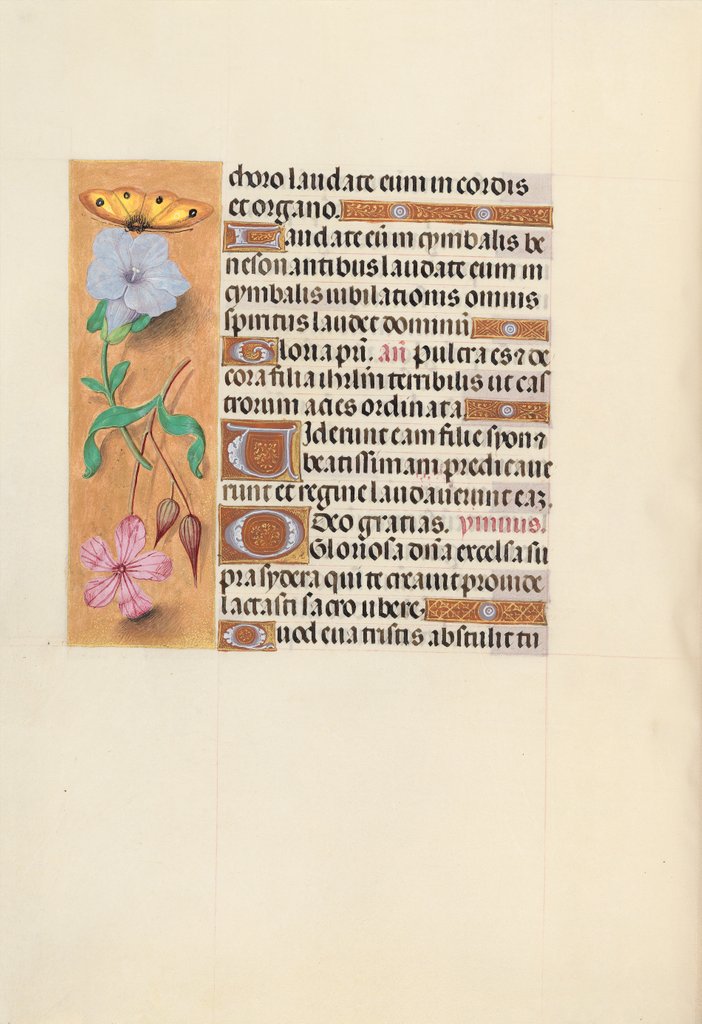 choro laudate eum in cordis
et organo.
Laudate eū in cymbalis be
nesonantibus laudate eum in
cymbalis iubilationis omnis
spiritus laudet dominū
Gloria pri. añ pulcra es ⁊ de
cora filia ihrlm terribilis ut cas
trorum acies ordinata.
Viderunt eam filie syon ⁊
beatissimam predicaue
runt et regine laudauerunt eaꝫ.
Deo gratias. ymnus.
O Gloriosa dña excelsa su
pra sydera qui te creauit prouide
lactasti sacro ubere.
Quod eua tristis abstulit tu